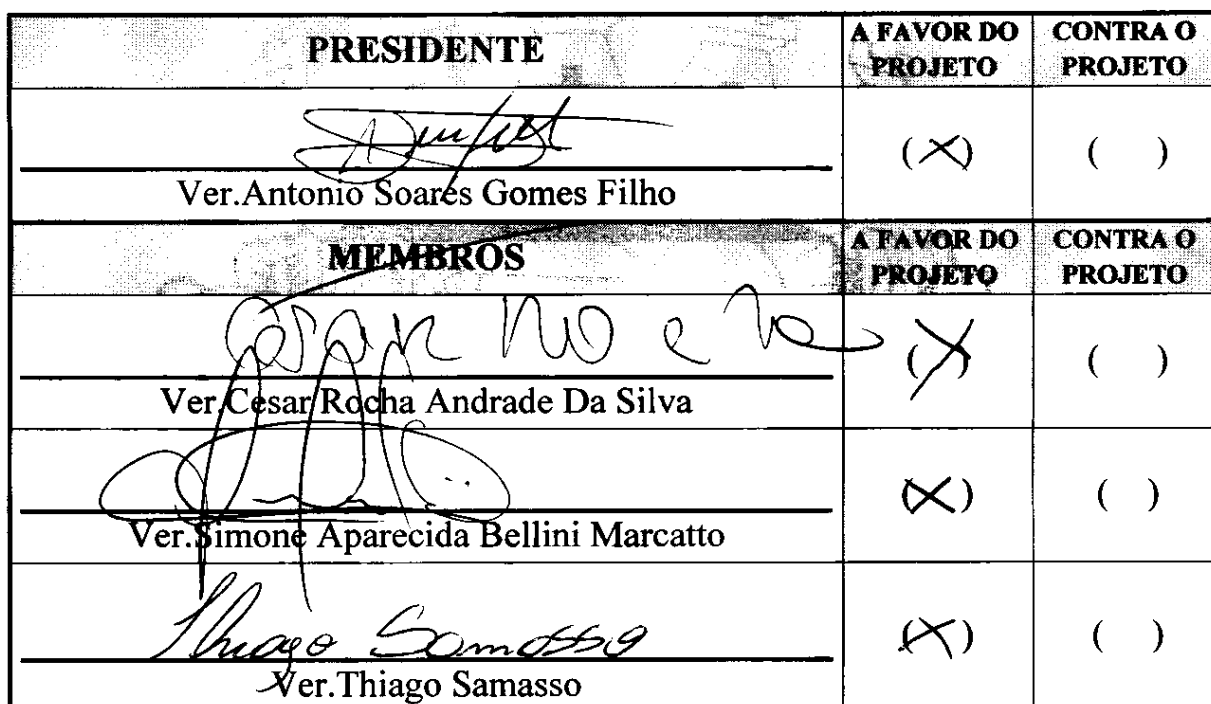 PRESIDENTE
A FAVOR DO PROJETO
CONTRA O PROJETO
(X)
( )
Ver.Antonio Soares Gomes Filho
MEMBROS
A FAVOR DO PROJETO
CONTRA O PROJETO
(X)
( )
Ver.Cesar Rocha Andrade Da Silva
(X)
( )
Ver.Simone Aparecida Bellini Marcatto
Thiago Samasso
(X)
( )
Ver.Thiago Samasso